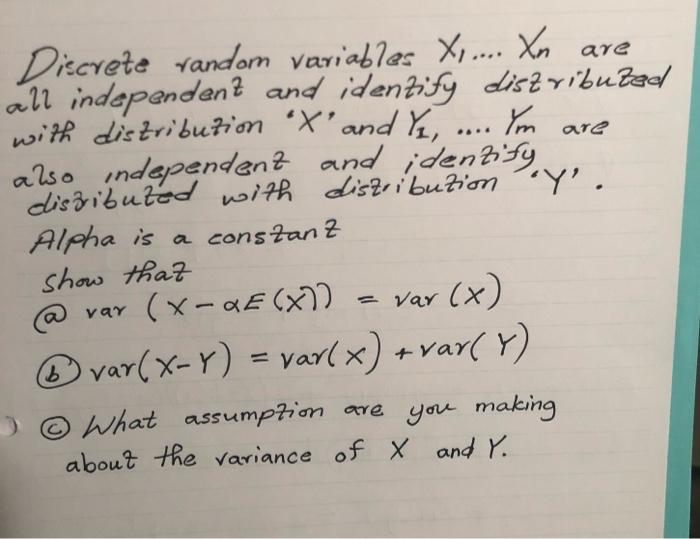 Discrete random variables X1.... Xn are
all independent and identify distributed
with distribution 'X' and Y1, .... Ym are
also independent and identify
distributed with distribution 'Y'.
Alpha is a constant
show that
(a) var (X - αE(X)) = var (X)
(b) var(X-Y) = var(X) + var(Y)
(c) What assumption are you making
about the variance of X and Y.